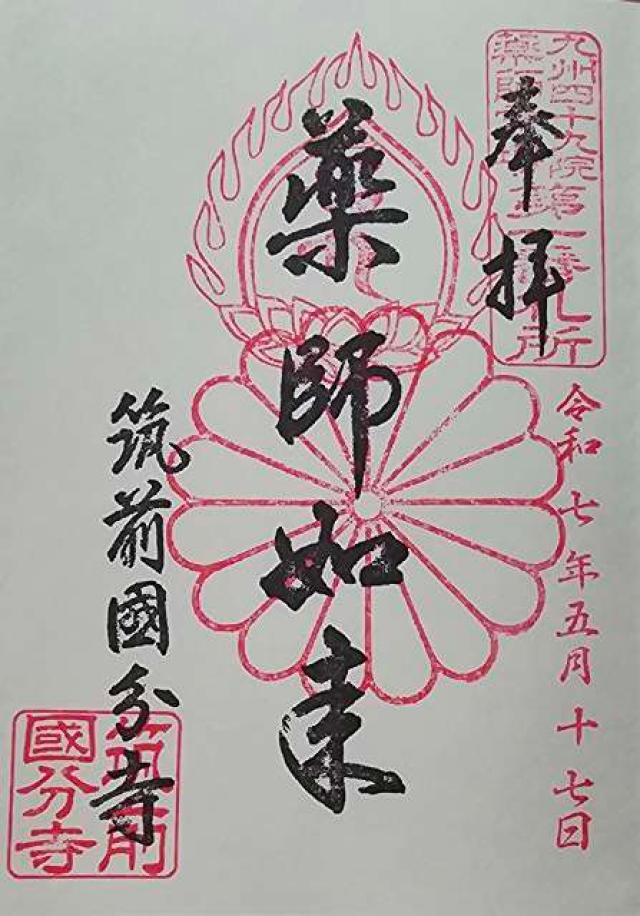 九州四十九院第一番札所
薬師
奉拝
令和七年五月十七日
薬師如来
筑前國分寺
筑前
國分寺